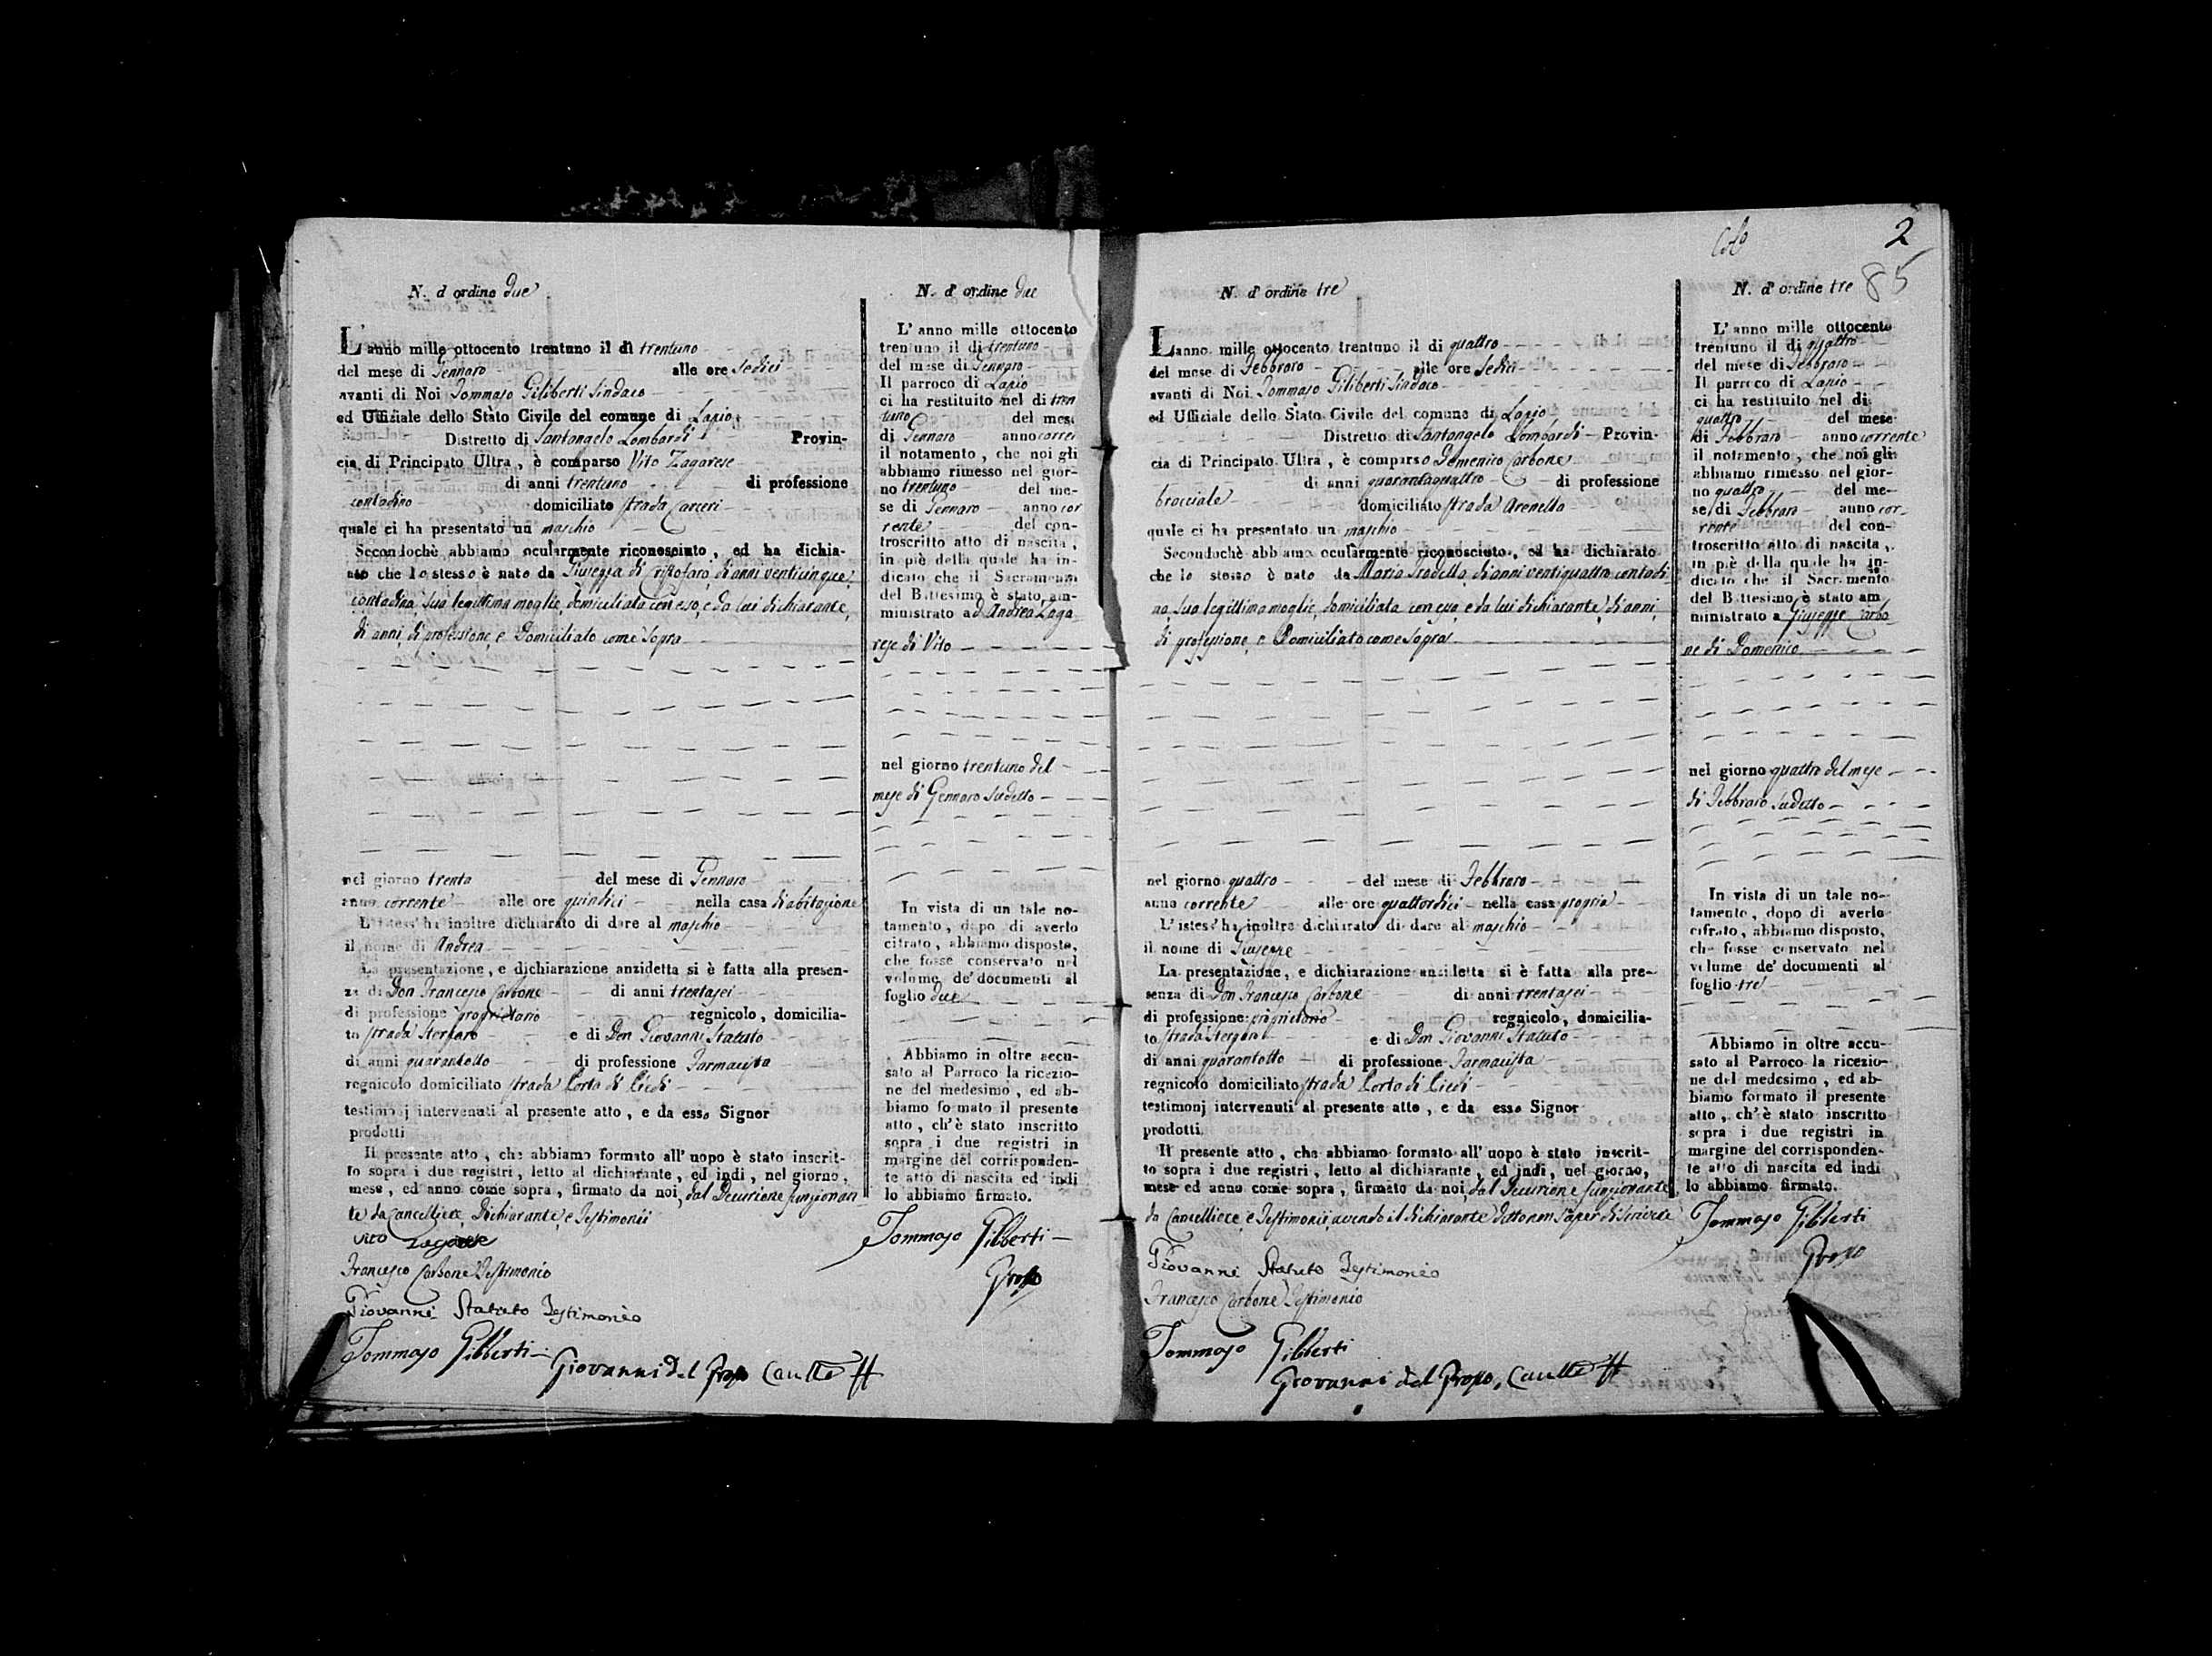 N. d'ordine due
L'anno mille ottocento trentuno il dì trentuno
del mese di Gennaro alle ore sedici
avanti di Noi Tommaso Giliberti Sindaco
ed Uffiziale dello Stato Civile del comune di Lapio
Distretto di Santangelo Lombardi Provin-
cia di Principato Ultra, è comparso Vito Zagarese
di anni trentuno di professione
contadino domiciliato strada Carceri
quale ci ha presentato un maschio
Secondochè abbiamo ocularmente riconosciuto, ed ha dichia-
rato che lo stesso è nato da Giuseppa di anni venticinque
contadina, sua legittima moglie, domiciliata con esso, e da lui dichiarante,
di anni, di professione, e Domiciliato come sopra
nel giorno trenta del mese di Gennaro
anno corrente alle ore quindici nella casa di abitazione
L'istess' ha inoltre dichiarato di dare al maschio
il nome di Andrea
La presentazione, e dichiarazione anzidetta si è fatta alla presen-
za di Don Francesco Carbone di anni trentasei
di professione proprietario regnicolo, domicilia-
to strada e di Don Giovanni Statuto
di anni quarantotto di professione Farmacista
regnicolo domiciliato strada Corto di Ciedi
testimonj intervenuti al presente atto, e da esso Signor
prodotti
Il presente atto, che abbiamo formato all' uopo è stato inscrit-
to sopra i due registri, letto al dichiarante, ed indi, nel giorno,
mese, ed anno come sopra, firmato da noi, dal Decurione funzionan
te da Cancelliere, Dichiarante, e Testimonii
Vito Zagarese
Francesco Carbone Testimonio
Giovanni Statuto Testimonio
Tommaso Giliberti
Giovanni del Grosso
N. d' ordine due
L' anno mille ottocento
trentuno il dì trentuno
del mese di Gennaro
Il parroco di Lapio
ci ha restituito nel dì tren
tuno del mese
di Gennaro anno corren
il notamento, che noi gli
abbiamo rimesso nel gior-
no trentuno del me-
se di Gennaro anno cor
rente del con-
troscritto atto di nascita,
in piè della quale ha in-
dicato che il Sacramento
del Battesimo è stato am-
ministrato ad Andrea Zaga
rese di Vito
nel giorno trentuno del
mese di Gennaro sudetto
In vista di un tale no-
tamento, dopo di averlo
cifrato, abbiamo disposto,
che fosse conservato nel
volume de' documenti al
foglio due
Abbiamo in oltre accu-
sato al Parroco la ricezio-
ne del medesimo, ed ab-
biamo formato il presente
atto, ch'è stato inscritto
sopra i due registri in
margine del corrisponden-
te atto di nascita ed indi
lo abbiamo firmato.
Tommaso Giliberti
Grosso
2
85
N. d' ordine tre
L'anno mille ottocento trentuno il dì quattro
del mese di Febbraro alle ore sedici
avanti di Noi Tommaso Giliberti Sindaco
ed Uffiziale dello Stato Civile del comune di Lapio
Distretto di Santangelo Lombardi Provin-
cia di Principato Ultra, è comparso Domenico Carbone
di anni quarantaquattro di professione
bracciale domiciliato strada Arenella
quale ci ha presentato un maschio
Secondochè abbiamo ocularmente riconosciuto, ed ha dichiarato
che lo stesso è nato da Maria di anni ventiquattro contadi
na, sua legittima moglie, domiciliata con esso, e da lui dichiarante, di anni,
di professione, e Domiciliato come sopra
nel giorno quattro del mese di Febbraro
anno corrente alle ore quattordici nella casa propria
L'istess' ha inoltre dichiarato di dare al maschio
il nome di Giuseppe
La presentazione, e dichiarazione anzidetta si è fatta alla pre-
senza di Don Francesco Carbone di anni trentasei
di professione proprietario regnicolo, domicilia-
to strada e di Don Giovanni Statuto
di anni quarantotto di professione Farmacista
regnicolo domiciliato strada Corto di Ciedi
testimonj intervenuti al presente atto, e da esso Signor
prodotti
Il presente atto, che abbiamo formato all' uopo è stato inscrit-
to sopra i due registri, letto al dichiarante, ed indi, nel giorno,
mese ed anno come sopra, firmato da noi, dal Decurione funzionante
da Cancelliere, e Testimonii, avendo il dichiarante detto non saper di scrivere
Giovanni Statuto Testimonio
Francesco Carbone Testimonio
Tommaso Giliberti
Giovanni del Grosso
N. d' ordine tre
L' anno mille ottocento
trentuno il dì quattro
del mese di Febbraro
Il parroco di Lapio
ci ha restituito nel dì
quattro del mese
di Febbraro anno corrente
il notamento, che noi gli
abbiamo rimesso nel gior-
no quattro del me-
se di Febbraro anno cor-
rente del con-
troscritto atto di nascita,
in piè della quale ha in-
dicato che il Sacramento
del Battesimo è stato am
ministrato a Giuseppe Carbo
ne di Domenico
nel giorno quattro del mese
di Febbraro sudetto
In vista di un tale no-
tamento, dopo di averlo
cifrato, abbiamo disposto,
che fosse conservato nel
volume de' documenti al
foglio tre
Abbiamo in oltre accu-
sato al Parroco la ricezio-
ne del medesimo, ed ab-
biamo formato il presente
atto, ch'è stato inscritto
sopra i due registri in
margine del corrisponden-
te atto di nascita ed indi
lo abbiamo firmato.
Tommaso Giliberti
Grosso